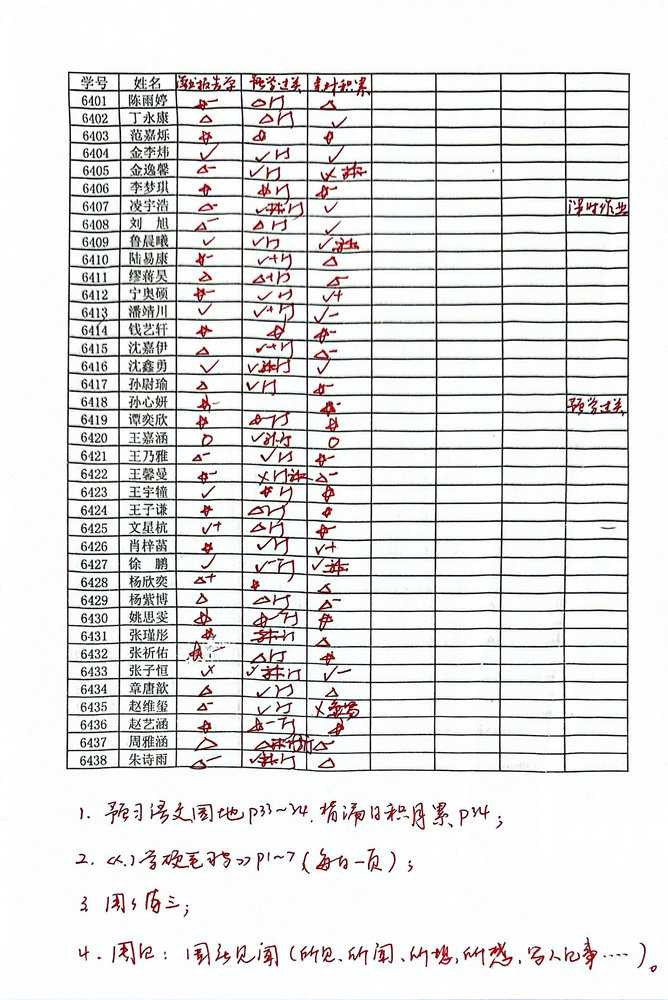 学号 姓名 预学过关
6401 陈雨婷 ☆- △订 △
6402 丁永康 △ △订 ✓
6403 范嘉烁 ☆ ☆ ☆
6404 金李炜 ✓ ✓订
6405 金逸馨 △- ✓订
6406 李梦琪 ☆ ☆订 ☆-
6407 凌宇浩 △- ✓ 订 ✓ 课时作业
6408 刘旭 △- △订 ✓
6409 鲁晨曦 ✓ ✓订 ✓
6410 陆易康 ☆- ✓+订 △
6411 缪蒋昊 △ △+订 △-
6412 宁奥硕 ☆- ✓订 ✓+
6413 潘靖川 ✓ ✓+订 ✓-
6414 钱艺轩 ☆ ☆ ☆-
6415 沈嘉伊 △ ✓+订 △-
6416 沈鑫勇 ✓ ✓ 订 ✓
6417 孙尉瑜 △ ✓订 ☆-
6418 孙心妍 ☆- ☆- 预学过关
6419 谭奕欣 ☆ ☆-订 ☆
6420 王嘉涵 O ✓ 订 O
6421 王乃雅 △- ✓订 ☆-
6422 王馨曼 ☆- ×订 △-
6423 王宇犝 ✓ ☆订 ☆
6424 王子谦 ☆ △订 ☆
6425 文星杭 ✓+ △订 ☆-
6426 肖梓菡 ☆ ✓订 ✓+
6427 徐鹏 ✓ ✓-订 ✓
6428 杨欣奕 △+ ☆ △
6429 杨紫博 △ △订 △-
6430 姚思雯 ☆ ☆-订 ☆
6431 张瑾彤 ☆ 订 △
6432 张祈佑 ☆- △订 ☆
6433 张子恒 ✓ 订 ✓-
6434 章唐歆 △ ✓订 △
6435 赵维玺 △- ✓订 ×
6436 赵艺涵 ☆ ☆-订 ☆
6437 周雅涵 △ △ △-
6438 朱诗雨 △- ✓ 订 △
1. 预习语文园地P33~34,背诵日积月累P34;
2. P1~7(每日一页);
3. 周;
4. 周记:周末见闻(所见、所闻、所想,所感,写人记事……)。